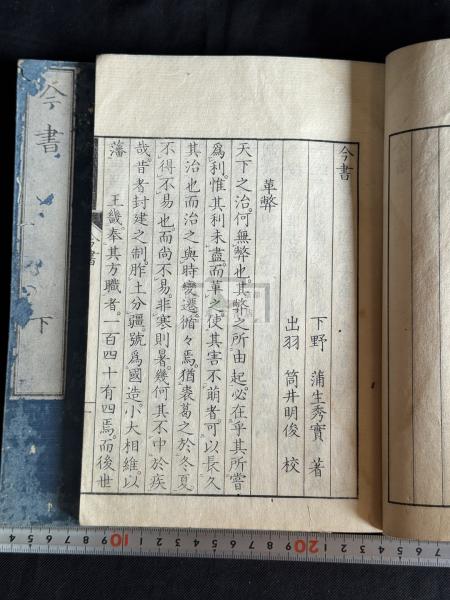 今書
下野 蒲生秀實 著
出羽 筒井明俊 校
革弊
天下之治。何無弊也。其弊之所由起。必在乎其所嘗
爲利。惟其利未盡。而革之。使其害不萌者。可以長久
其治也。而治之與時變遷。循々焉。猶裘葛之於冬夏。
不得不易也。而尚不易。非寒則暑。幾何其不中於疾
哉。昔者封建之制。胙土分疆。號爲國造。小大相維。以
藩 王畿。奉其方職者。一百四十有四焉。而後世
今書
一
今書 下
6 7 8 9 10 1 2 3 4 5 6 7 8 9 20 1 2 3 4 5 6 7